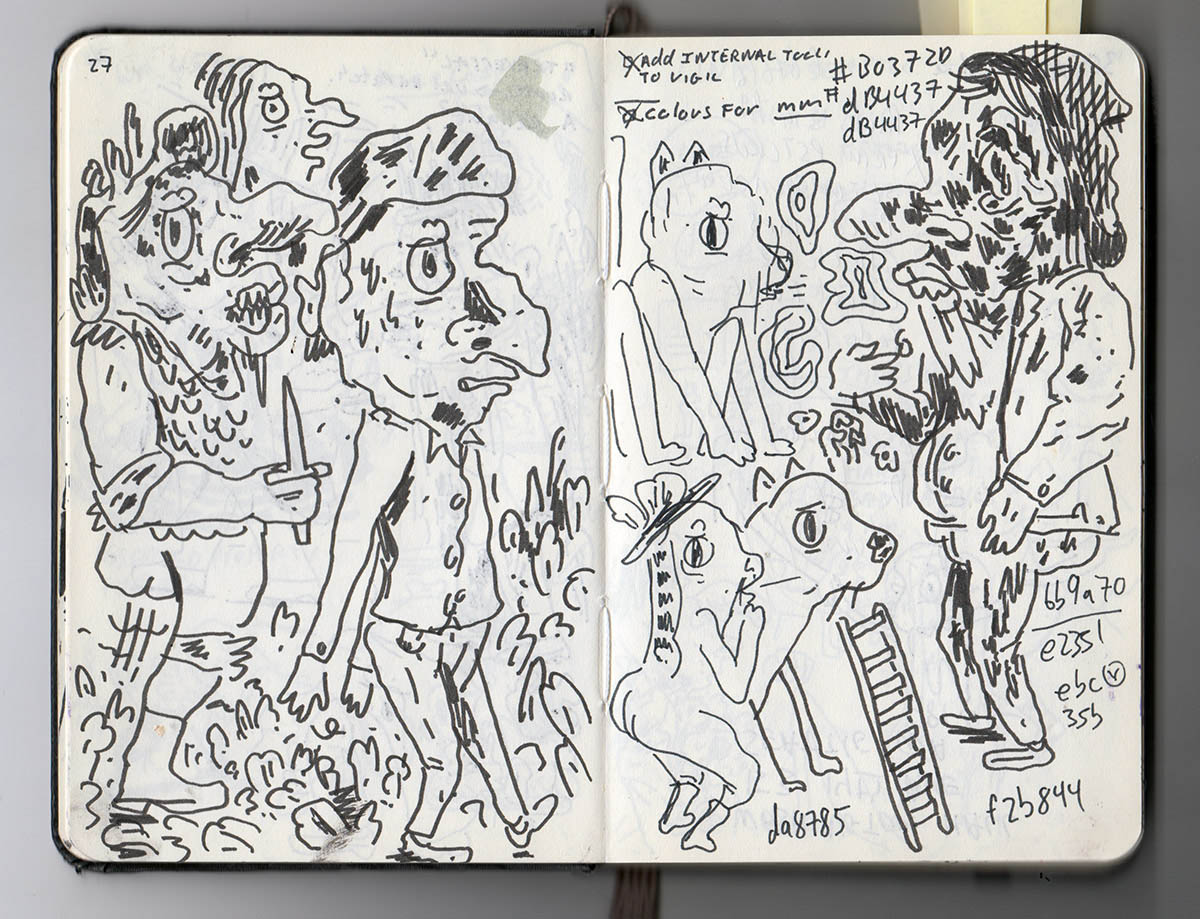 27
add INTERNAL TOOL
TO VIGIL
#B0372D
colous FOR mm
#dB4437
dB4437
bb9a70
e2351
ebc
35b
da8785
f2b844